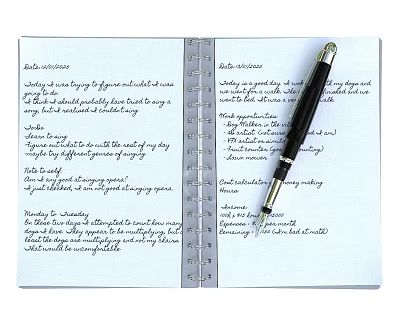 Date: 12/01/2025
Today I was trying to figure out what I was
going to do.
I think I should probably have tried to sing a
song, but I realised I couldn't sing
ToDo:
-Learn to sing
-Figure out what to do with the rest of my day
-maybe try different genres of singing
Note to self:
Am I any good at singing opera?
I just checked, I am not good at singing opera.
Monday to Tuesday
On those two days I attempted to count how many
dogs I have. They appear to be multiplying, but at
least the dogs are multiplying and not my chairs.
That would be uncomfortable
Date: 13/01/2025
Today is a good day. I my dogs and
we went for a walk. The finished and we
went to bed. It was a
Work opportunities
-Dog Walker in the
-3D artist (not sure I am)
-VFX artist on
-Fruit counter (good counting)
-Lawn mower
Cost calculatory money making
Hours:
Income:
Expenses per month
Remaining (I'm bad at math)